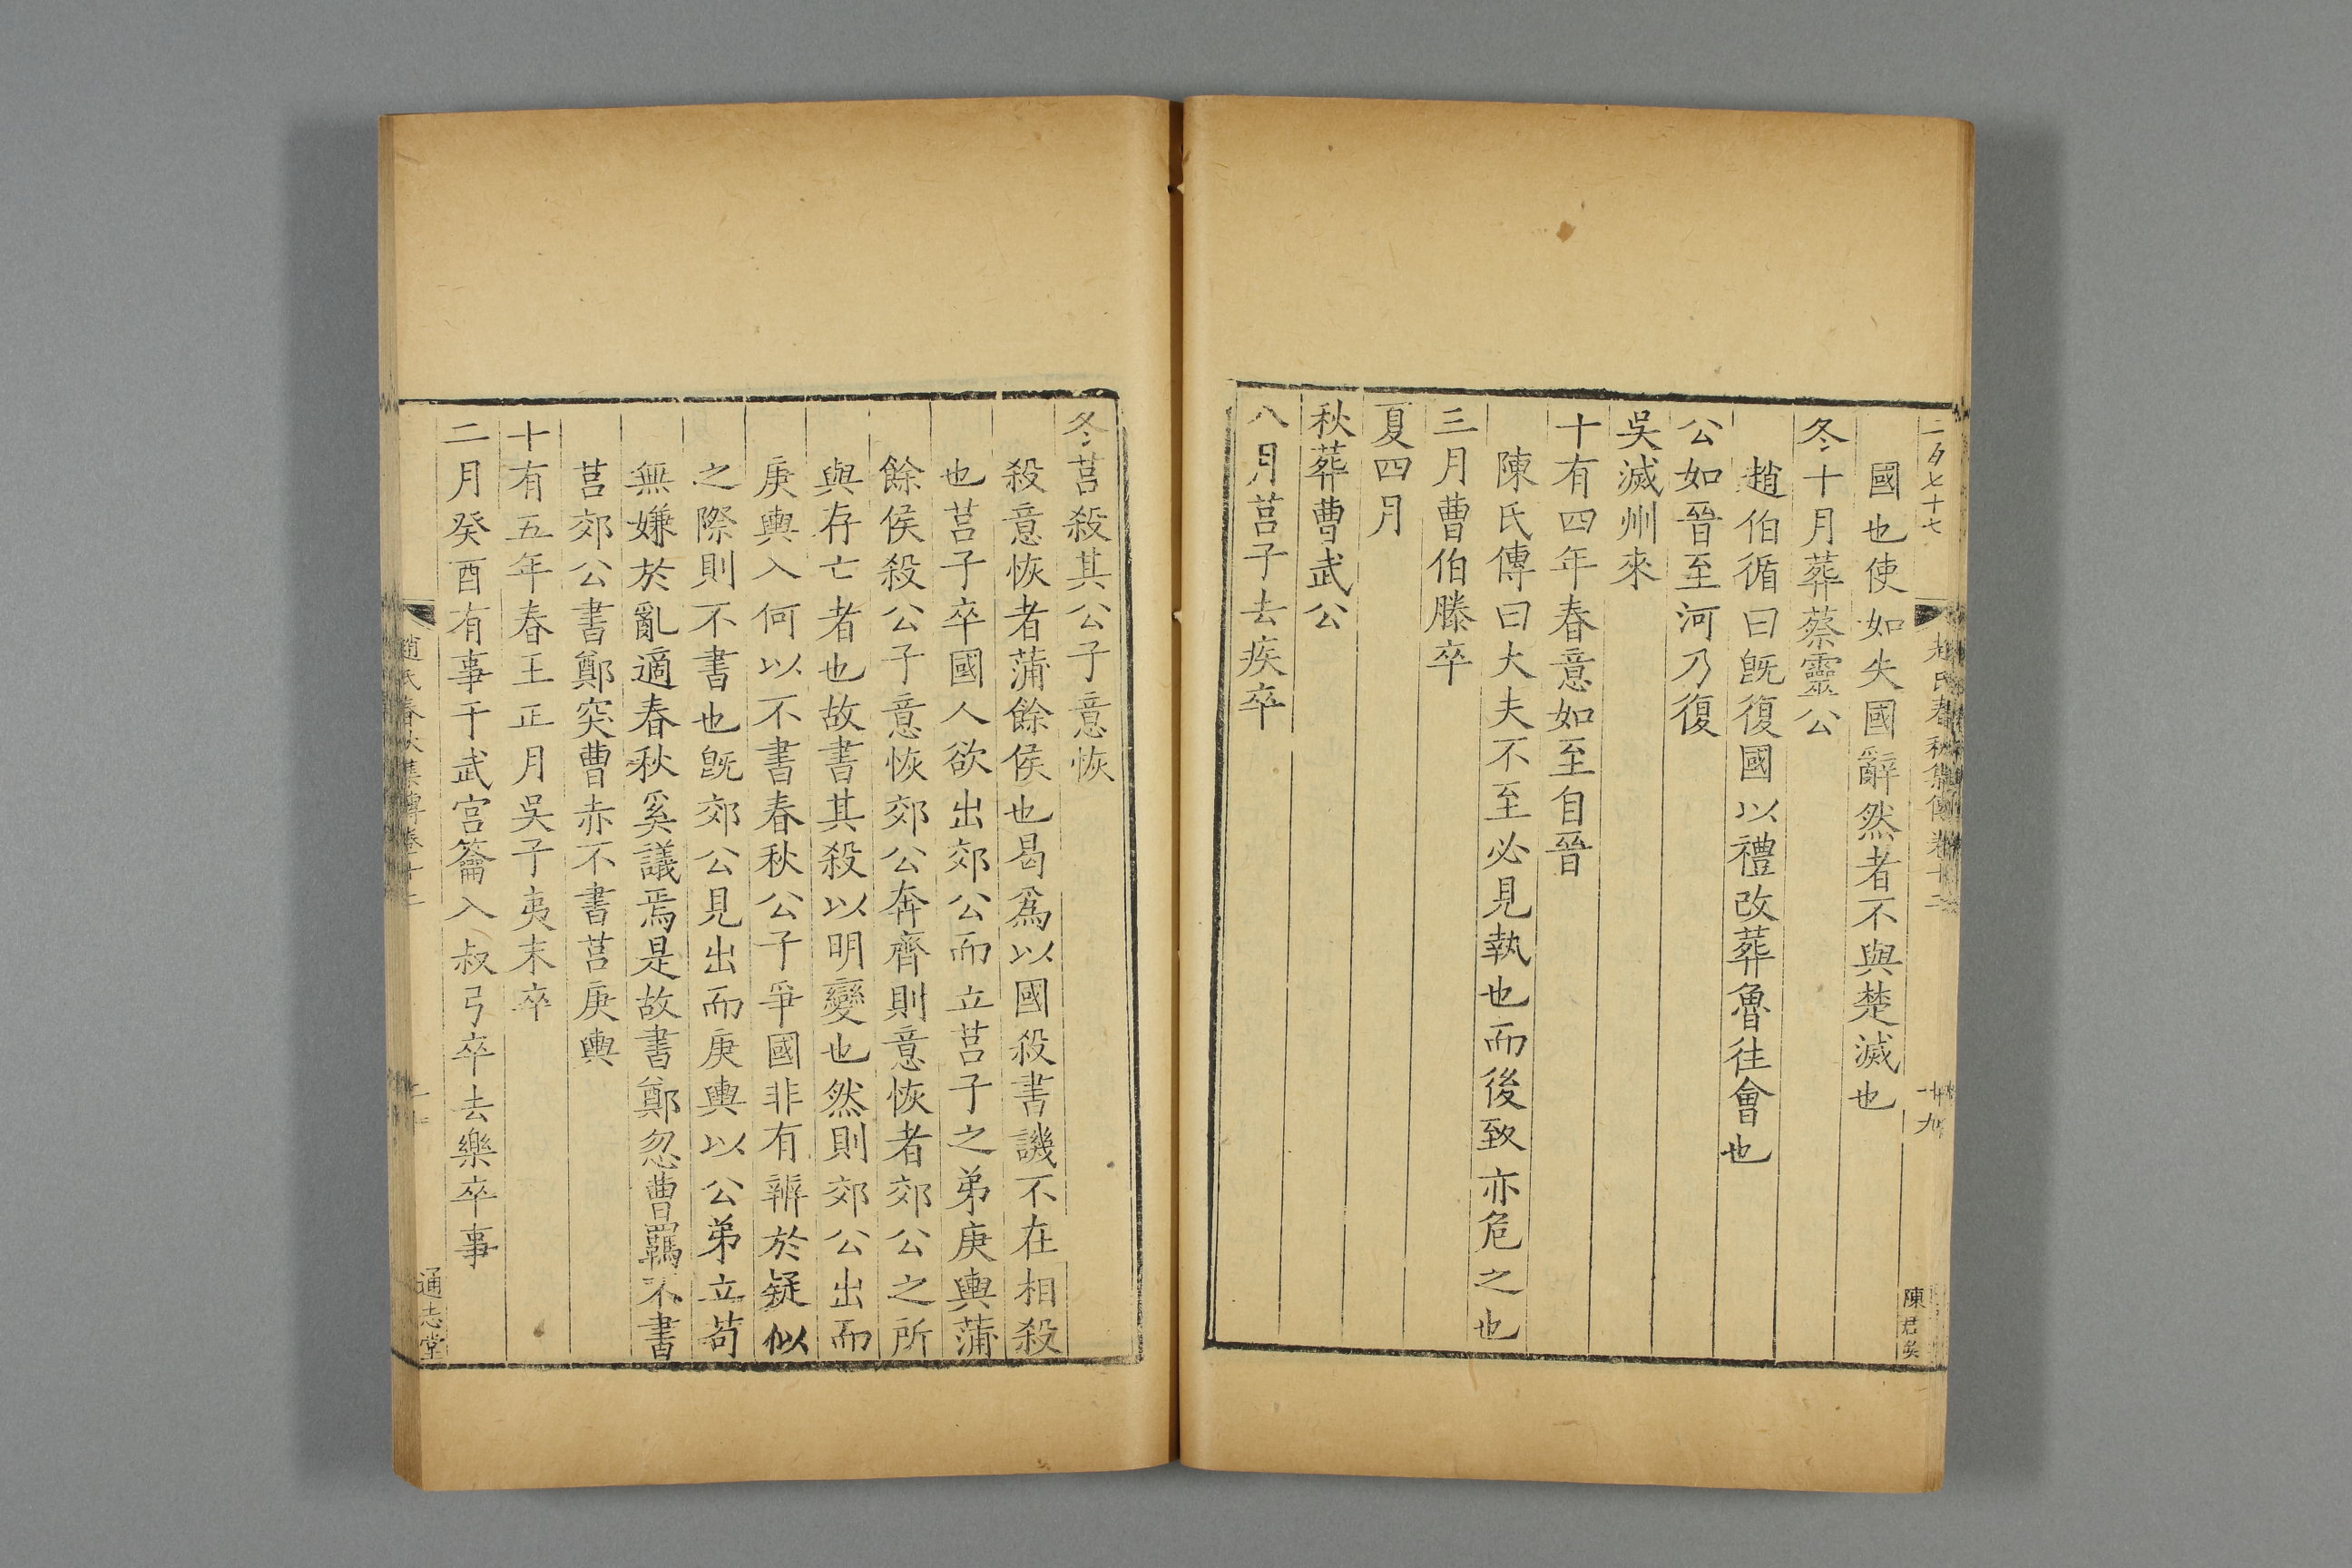 國也使如失國辭然者不與楚滅也
冬十月葬蔡靈公
趙伯循曰旣復國以禮改葬魯往會也
公如晉至河乃復
吳滅州來
十有四年春意如至自晉
陳氏傳曰大夫不至必見執也而後致亦危之也
三月曹伯滕卒
夏四月
秋葬曹武公
八月莒子去疾卒
冬莒殺其公子意恢
殺意恢者蒲餘侯也曷爲以國殺書譏不在相殺
也莒子卒國人欲出郊公而立莒子之弟庚輿蒲
餘侯殺公子意恢郊公奔齊則意恢者郊公之所
與存亡者也故書其殺以明變也然則郊公出而
庚輿入何以不書春秋公子爭國非有辨於疑似
之際則不書也旣郊公見出而庚輿以公弟立苟
無嫌於亂適春秋奚議焉是故書鄭忽曹羈不書
莒郊公書鄭突曹赤不書莒庚輿
十有五年春王正月吳子夷末卒
二月癸酉有事于武宮籥入叔弓卒去樂卒事
趙氏春秋集傳卷十二
通志堂